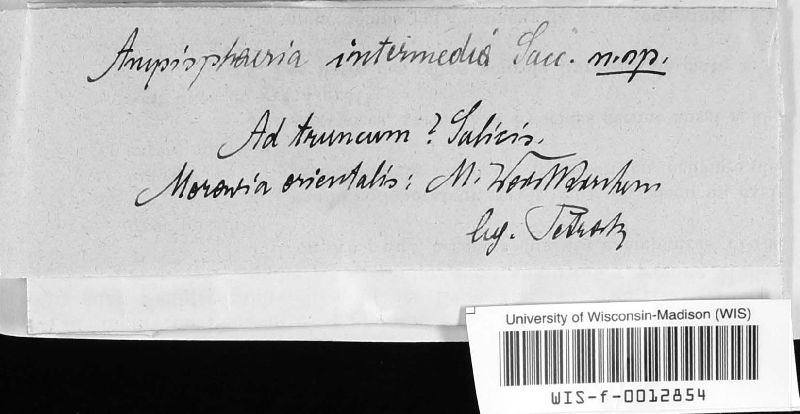 Ampisphaeria intermedia Sacc. n.sp.
Ad truncum ? Salicis.
Moravia orientalis: M.
leg. Petrak
University of Wisconsin-Madison (WIS)
WIS-f-0012854